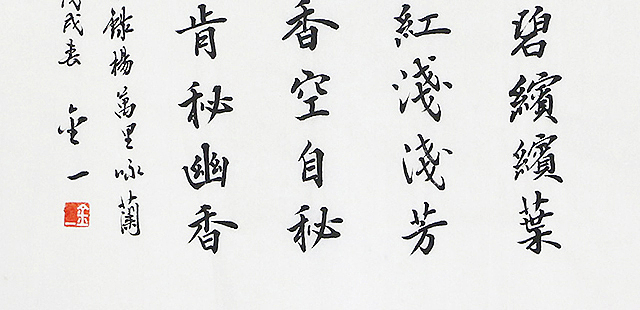 碧繽繽葉
紅淺淺芳
香空自秘
肯秘幽香
錄楊萬里咏蘭
戊戌春 金一